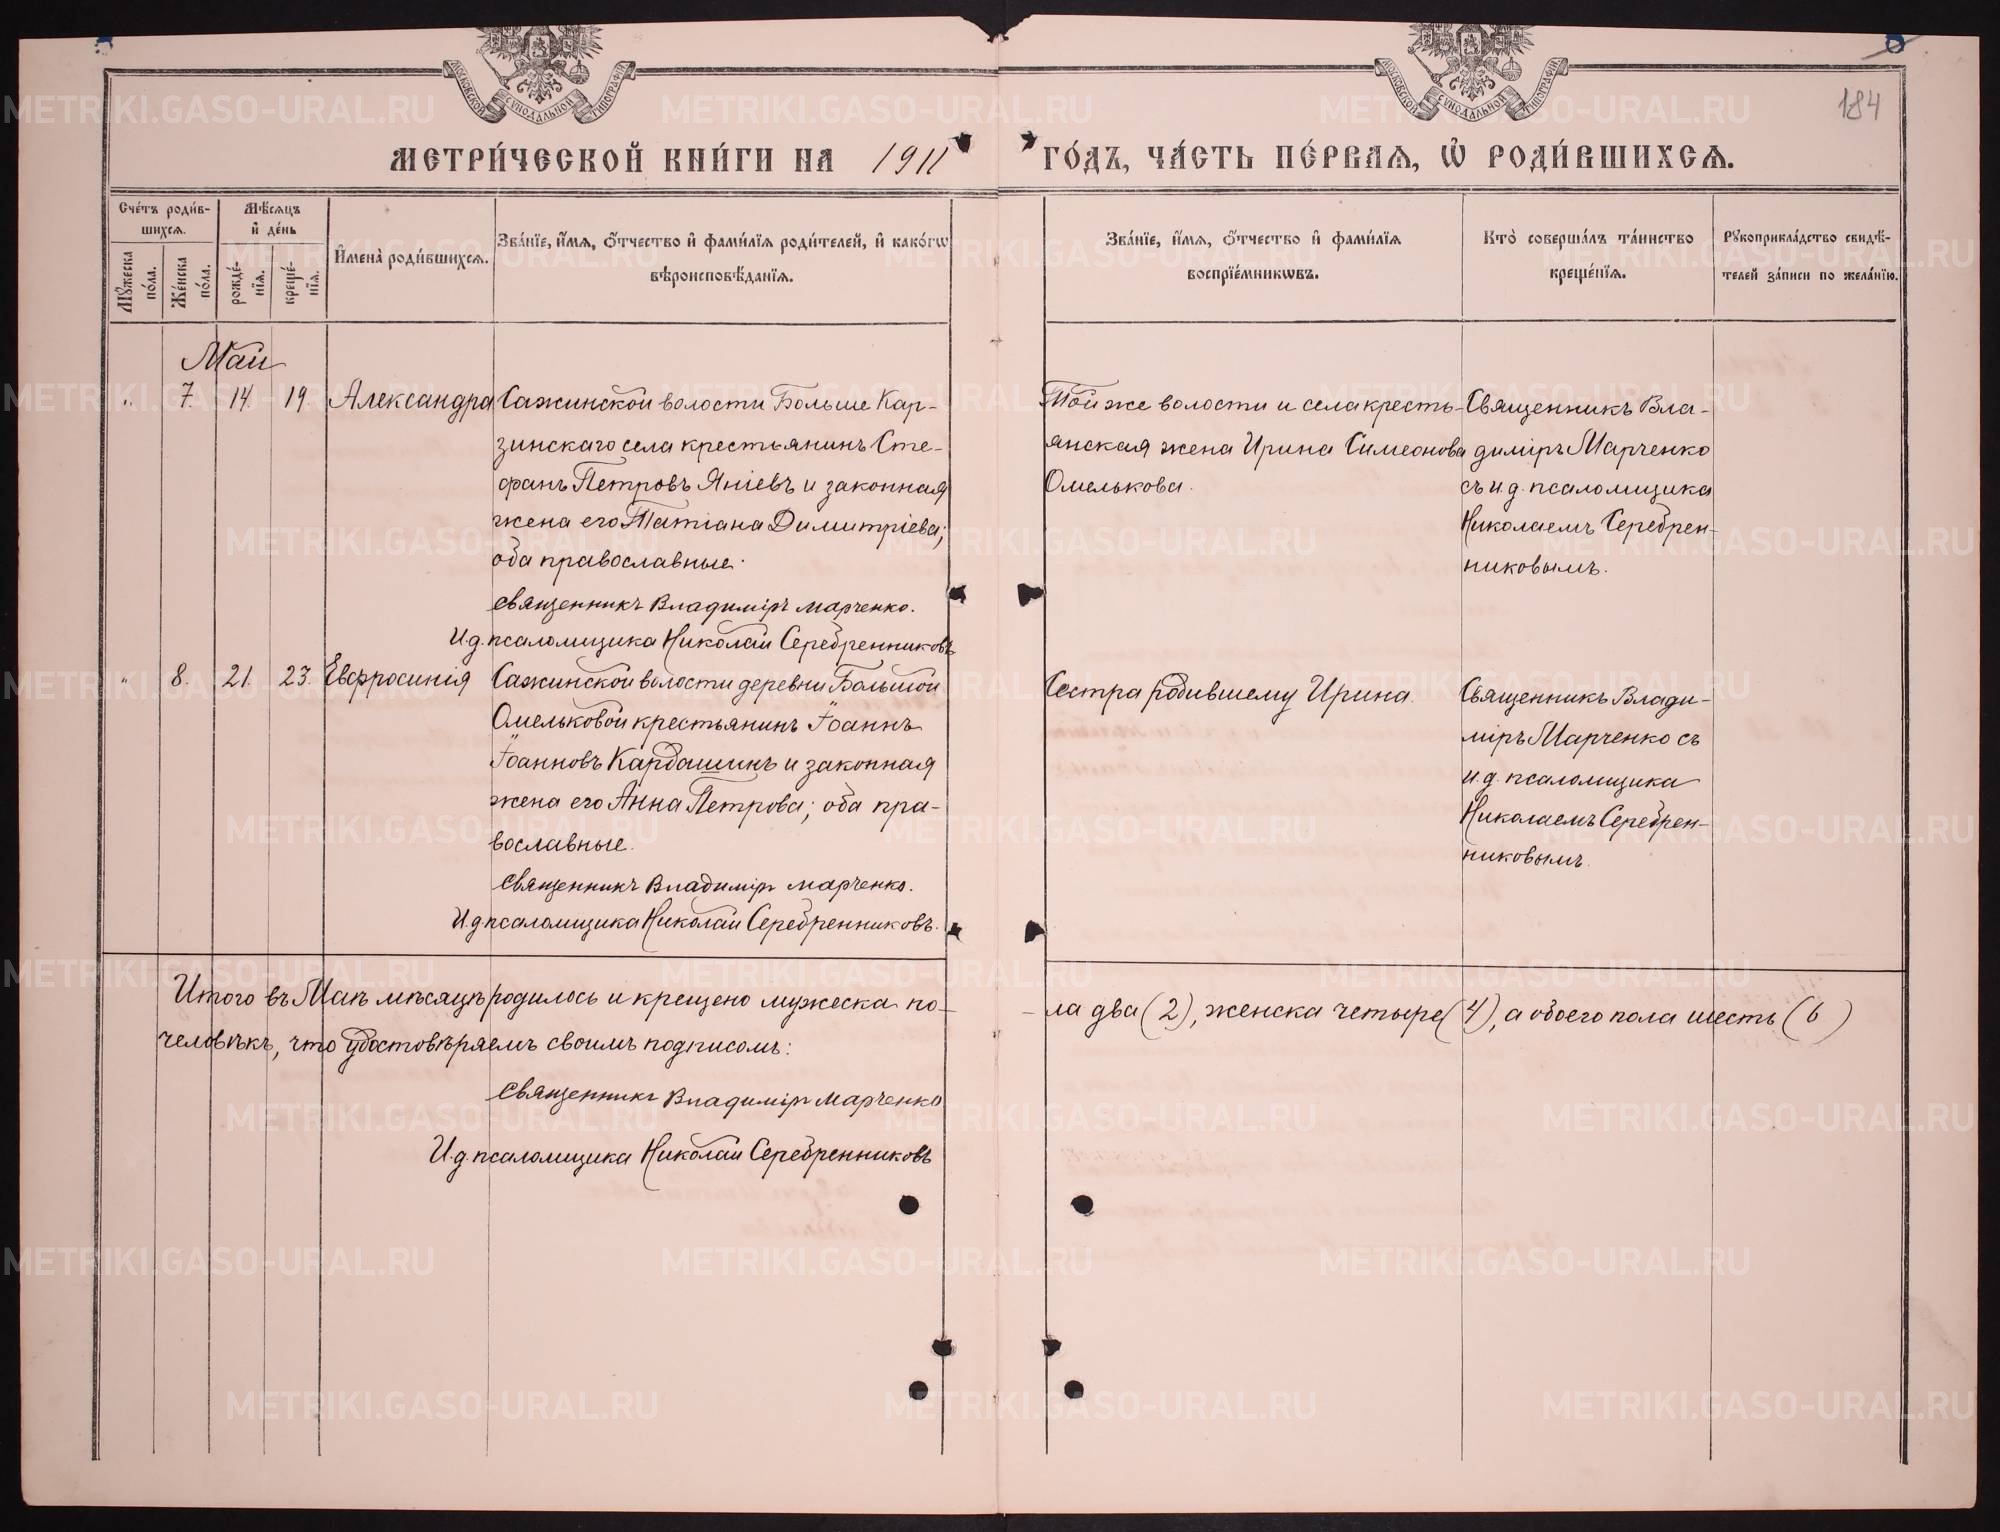 МОСКОВСКОЙ СѴНОДАЛЬНОЙ ТИПОГРАФІИ
МОСКОВСКОЙ СѴНОДАЛЬНОЙ ТИПОГРАФІИ
184
МЕТРИ́ЧЕСКОЙ КНИ́ГИ НА 1911 ГО́ДЪ, ЧА́СТЬ ПЕ́РВАѦ, Ѡ҆ РОДИ́ВШИХСѦ.
Сче́тъ роди́в-
шихсѧ.
Мѣ́сѧцъ
и҆ де́нь
Мꙋ́жеска
по́ла.
Же́нска
по́ла.
рожде́-
нїѧ.
креще́-
нїѧ.
И҆мена̀ роди́вшихсѧ.
Зва́нїе, и҆́мѧ, ѻ҆́тчество и҆ фами́лїѧ роди́телей, и҆ како́гѡ
вѣроисповѣ́данїѧ.
Зва́нїе, и҆́мѧ, ѻ҆́тчество и҆ фами́лїѧ
воспрїе́мникѡвъ.
Кто̀ соверша́лъ та́инство
креще́нїѧ.
Рꙋкоприкла́дство свидѣ́-
телей за́писи по жела́нїю.
Май
" 7. 14. 19. Александра
Сажинской волости Больше Кар-
зинскаго села крестьянинъ Сте-
фанъ Петровъ Яніевъ и законная
жена его Татіана Димитріева;
оба православные.
Священникъ Владиміръ Марченко.
И.д. псаломщика Николай Серебренниковъ
Той же волости и села кресть-
янская жена Ирина Симеонова
Омелькова.
Священникъ Вла-
диміръ Марченко
съ и.д. псаломщика
Николаемъ Серебрен-
никовымъ.
" 8. 21. 23. Евфросинія
Сажинской волости деревни Большой
Омельковой крестьянинъ Іоаннъ
Іоанновъ Кардашинъ и законная
жена его Анна Петрова; оба пра-
вославные.
Священникъ Владиміръ Марченко.
И.д. псаломщика Николай Серебренниковъ.
Сестра родившему Ирина.
Священникъ Влади-
міръ Марченко съ
и.д. псаломщика
Николаемъ Серебрен-
никовымъ.
Итого въ Маѣ мѣсяцѣ родилось и крещено мужеска по-
-ла два (2), женска четыре (4), а обоего пола шесть (6)
человѣкъ, что удостовѣряемъ своимъ подписомъ:
Священникъ Владиміръ Марченко
И.д. псаломщика Николай Серебренниковъ
METRIKI.GASO-URAL.RU